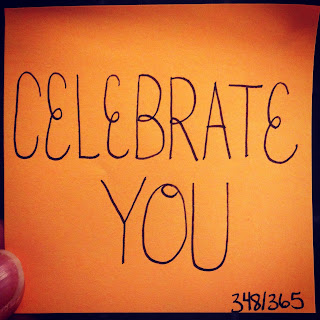 CELEBRATE
YOU
348/365